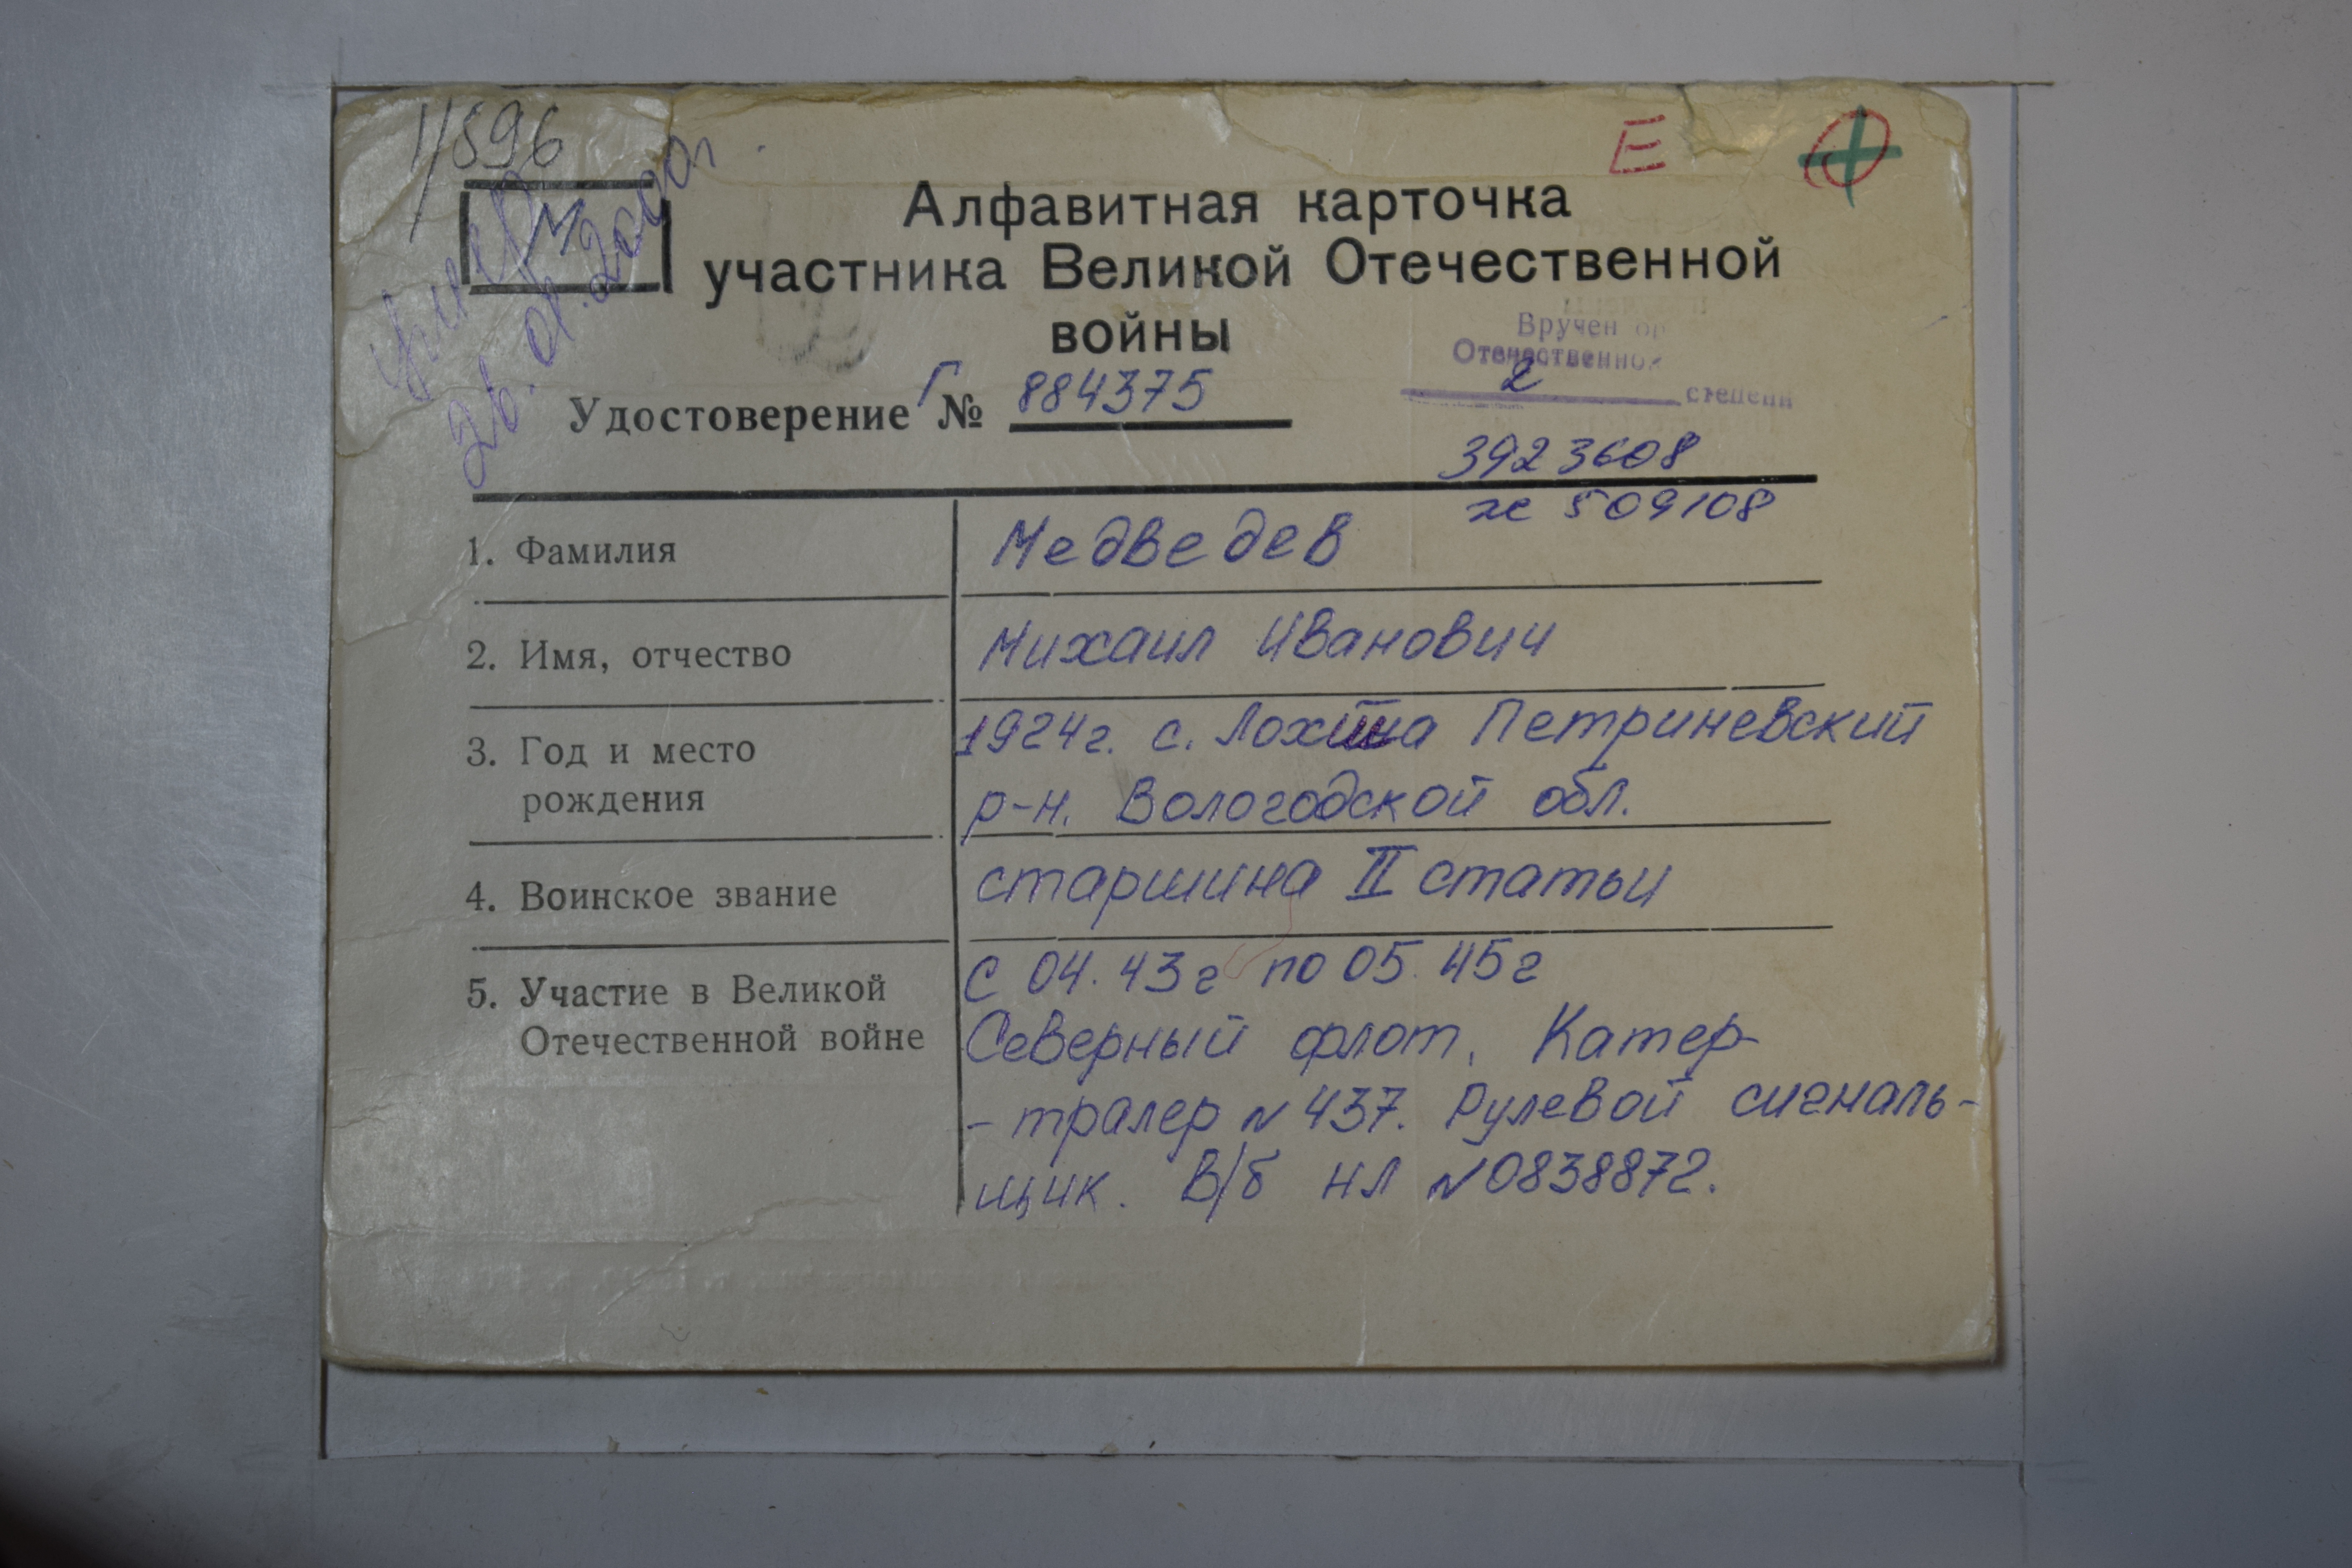 1/896
Е
М
умер
26.01.2000г.
Алфавитная карточка
участника Великой Отечественной
войны
Вручен ор
Отечественной
2 степени
Удостоверение Г № 884375
3923608
1. Фамилия Медведев
2. Имя, отчество Михаил Иванович
3. Год и место 1924г. с. Петриневский
рождения р-н. Вологодской обл.
4. Воинское звание старшина II статьи
5. Участие в Великой с 04.43г по 05.45г
Отечественной войне Северный флот. Катер-
-тралер N 437. Рулевой сигналь-
щик. В/б НЛ N0838872.